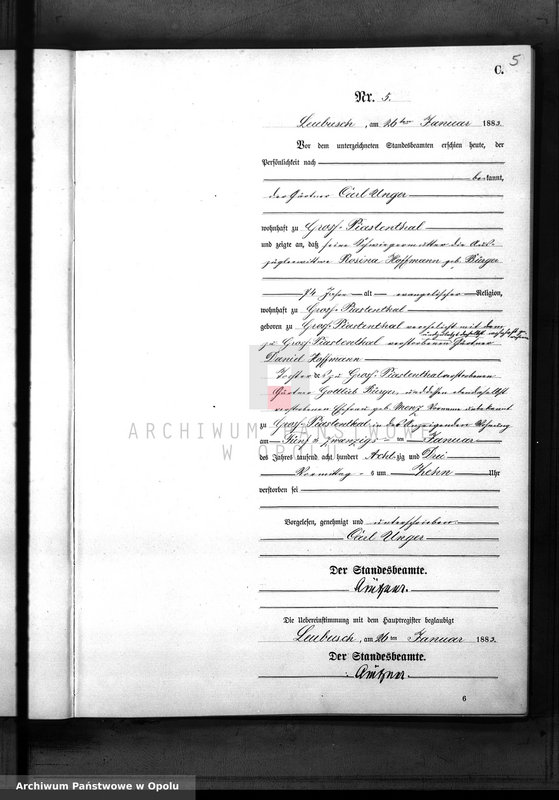 5
C.
Nr. 5.
Leubusch, am 26ten Januar 1883.
Vor dem unterzeichneten Standesbeamten erschien heute, der
Persönlichkeit nach
bekannt,
der Gärtner Carl Unger
wohnhaft zu Groß-Piastenthal
und zeigte an, daß seine Schwiegermutter die Aus-
züglerwittwe Rosina Hoffmann geb. Bürger
74 Jahre alt evangelischer Religion,
wohnhaft zu Groß-Piastenthal
geboren zu Groß-Piastenthal verehelicht mit dem
zu Groß-Piastenthal verstorbenen Gärtner
Daniel Hoffmann
Tochter des zu Groß-Piastenthal verstorbenen
Gärtner Gottlieb Bürger, und dessen ebendaselbst
verstorbenen Ehefrau geb. Menz Vorname unbekannt
zu Groß-Piastenthal in der Ungerschen Wohnung
am Fünf u zwanzigsten Januar
des Jahres tausend acht hundert Achtzig und Drei
Vormittags um Zehn Uhr
verstorben sei
Vorgelesen, genehmigt und unterschrieben
Carl Unger
Der Standesbeamte.
Die Uebereinstimmung mit dem Hauptregister beglaubigt
Leubusch, am 26ten Januar 1883.
Der Standesbeamte.
6
ARCHIWUM PAŃSTWOWE
W OPOLU
Archiwum Państwowe w Opolu